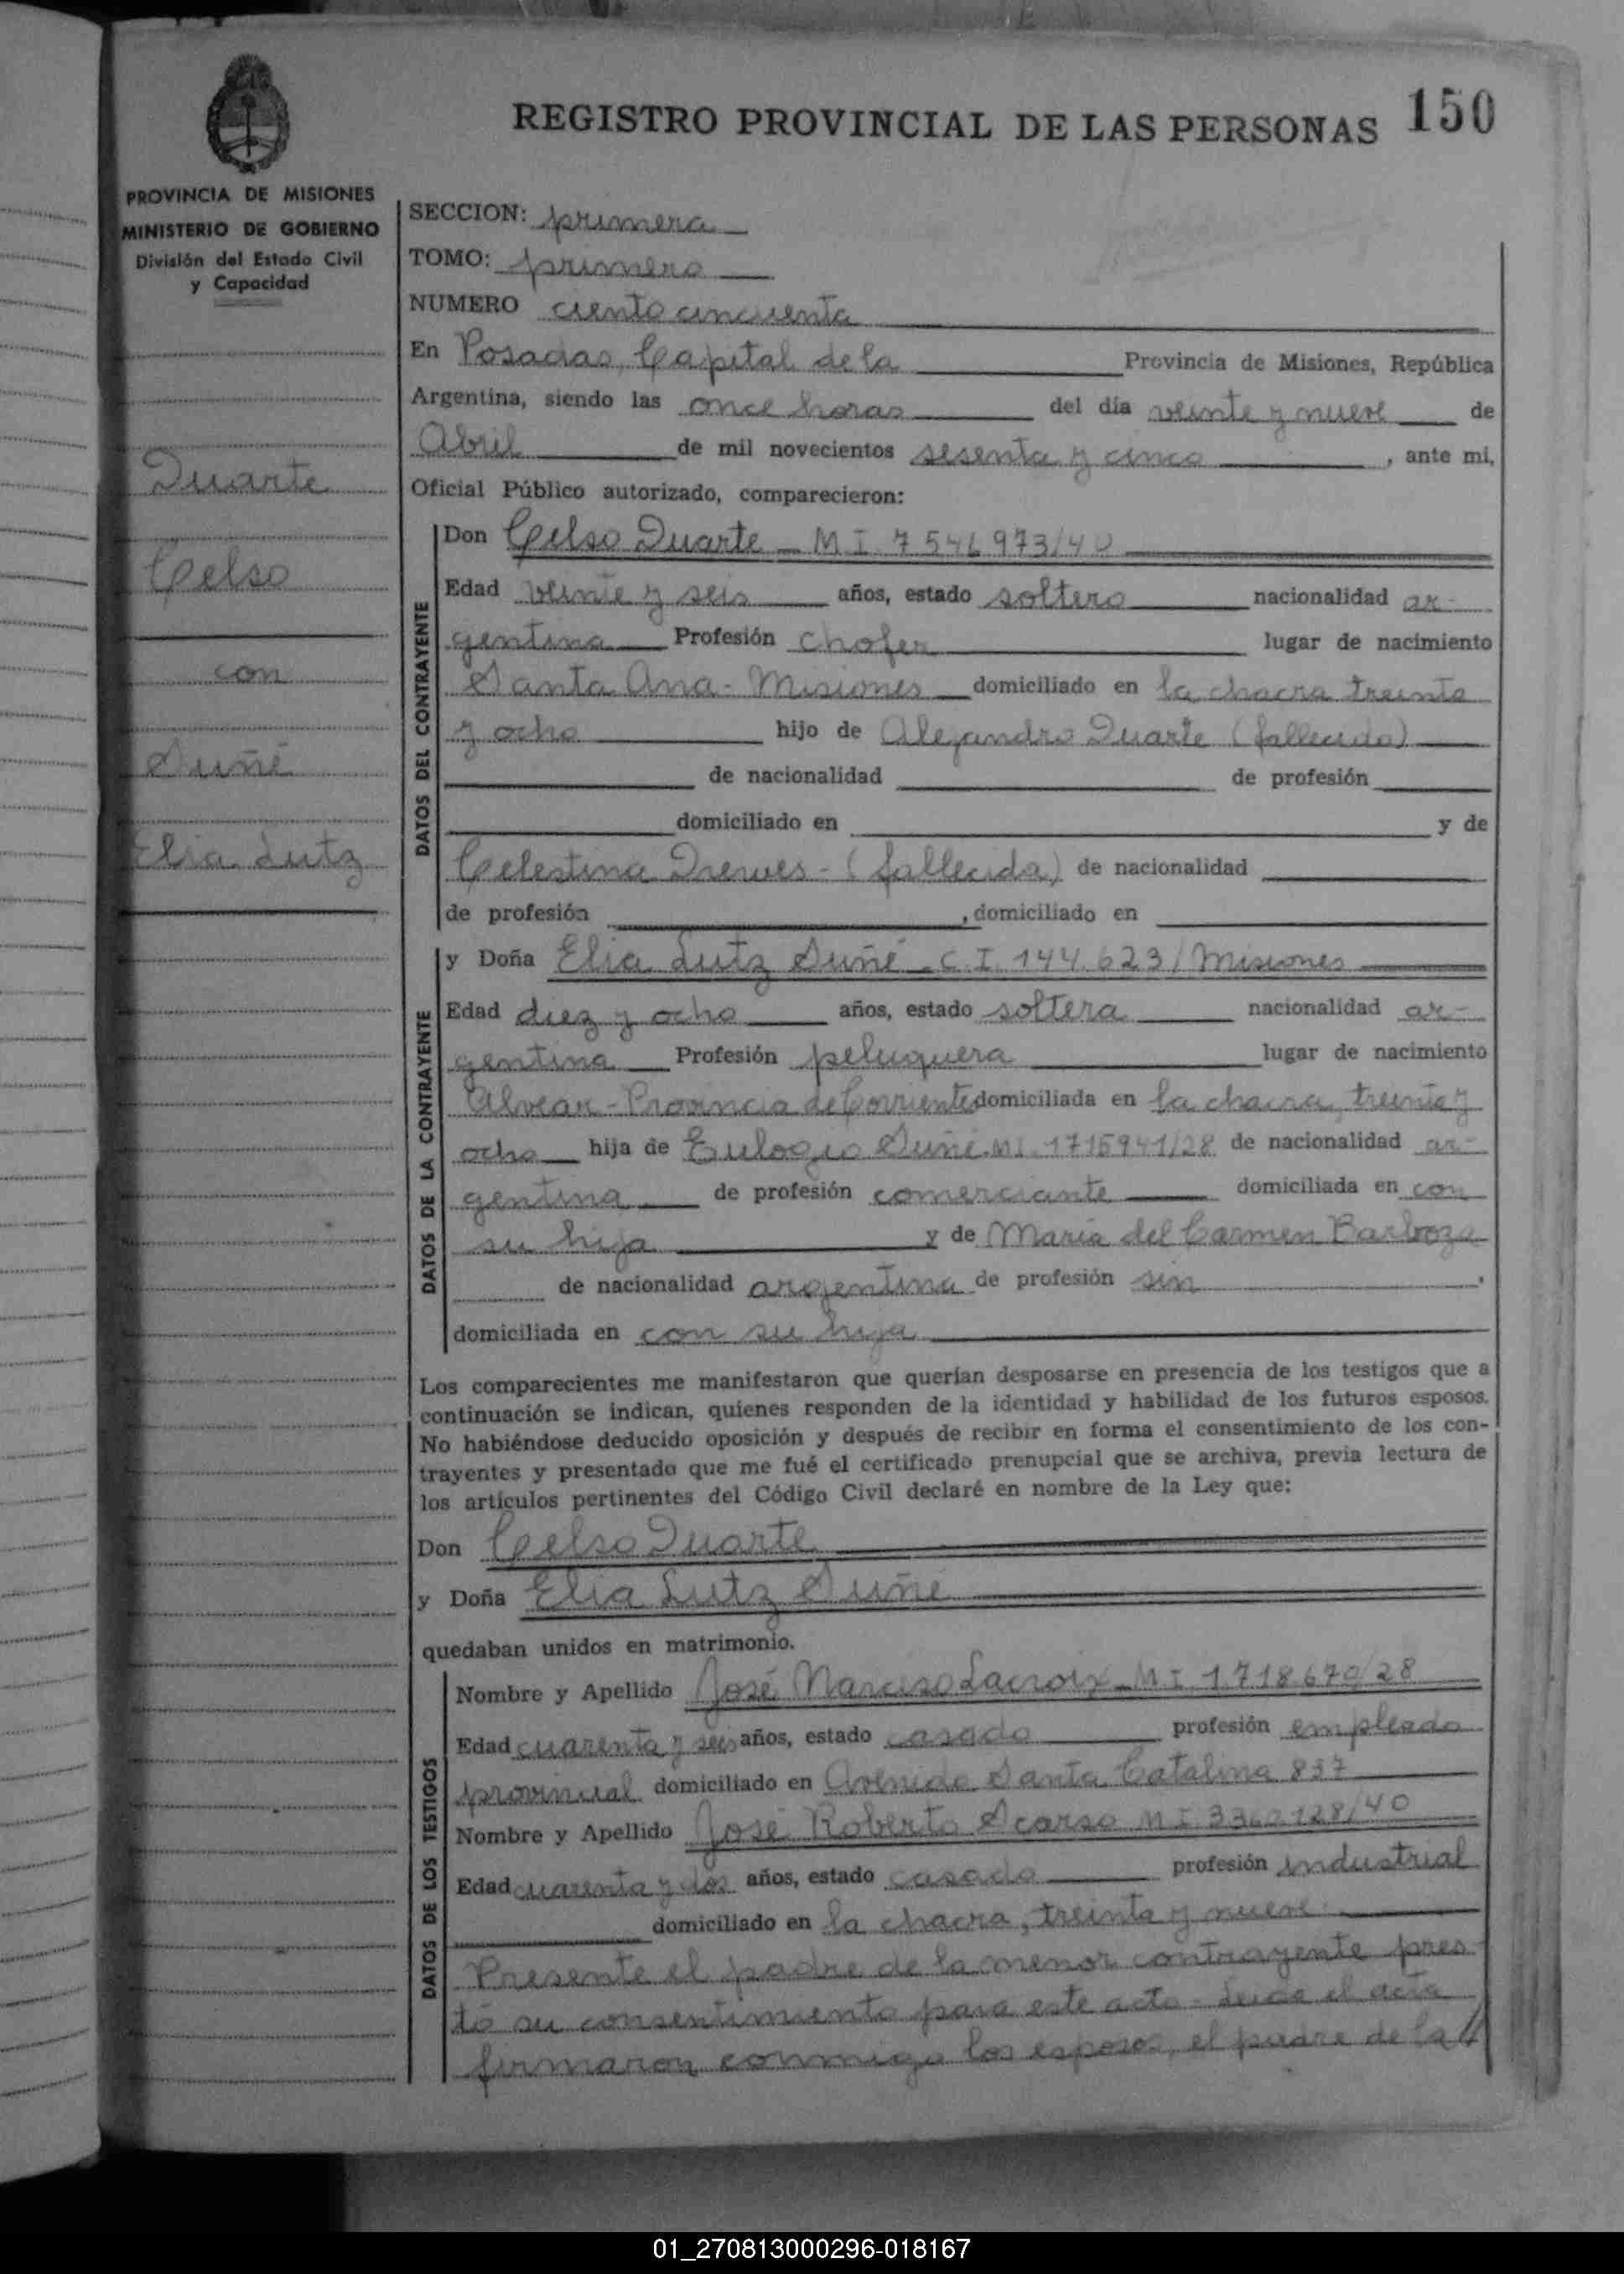 REGISTRO PROVINCIAL DE LAS PERSONAS 150
PROVINCIA DE MISIONES
MINISTERIO DE GOBIERNO
División del Estado Civil
y Capacidad
Duarte
Celso
con
Suñé
Elia Lutz
SECCION: primera
TOMO: primero
NUMERO ciento cincuenta
En Posadas, Capital de la Provincia de Misiones, República
Argentina, siendo las once horas del día veinte y nueve de
Abril de mil novecientos sesenta y cinco, ante mi,
Oficial Público autorizado, comparecieron:
DATOS DEL CONTRAYENTE
Don Celso Duarte - M I. 7546973/40
Edad veinte y seis años, estado soltero nacionalidad ar-
gentina Profesión chofer lugar de nacimiento
Santa Ana - Misiones domiciliado en la chacra treinta
y ocho hijo de Alejandro Duarte (fallecido)
de nacionalidad de profesión
domiciliado en y de
Celestina Drewes - (fallecida) de nacionalidad
de profesión , domiciliado en
DATOS DE LA CONTRAYENTE
y Doña Elia Lutz Suñé - C. I. 144.623/Misiones
Edad diez y ocho años, estado soltera nacionalidad ar-
gentina Profesión peluquera lugar de nacimiento
Alvear - Provincia de Corrientes domiciliada en la chacra, treinta y
ocho hija de Eulogio Suñé M.I. 1715941/28 de nacionalidad ar-
gentina de profesión comerciante domiciliada en con
su hija y de María del Carmen Barboza
de nacionalidad argentina de profesión sin
domiciliada en con su hija
Los comparecientes me manifestaron que querían desposarse en presencia de los testigos que a
continuación se indican, quienes responden de la identidad y habilidad de los futuros esposos.
No habiéndose deducido oposición y después de recibir en forma el consentimiento de los con-
trayentes y presentado que me fué el certificado prenupcial que se archiva, previa lectura de
los artículos pertinentes del Código Civil declaré en nombre de la Ley que:
Don Celso Duarte
y Doña Elia Lutz Suñé
quedaban unidos en matrimonio.
DATOS DE LOS TESTIGOS
Nombre y Apellido José Narciso Lacroix - M I. 1.718.670/28
Edad cuarenta y seis años, estado casado profesión empleado
provincial domiciliado en Avenida Santa Catalina 837
Nombre y Apellido José Roberto Scarso M I 3360128/40
Edad cuarenta y dos años, estado casado profesión industrial
domiciliado en la chacra, treinta y nueve
Presente el padre de la menor contrayente pres-
tó su consentimiento para este acto - Leida el acta
firmaron conmigo los esposos, el padre de la //
01_270813000296-018167